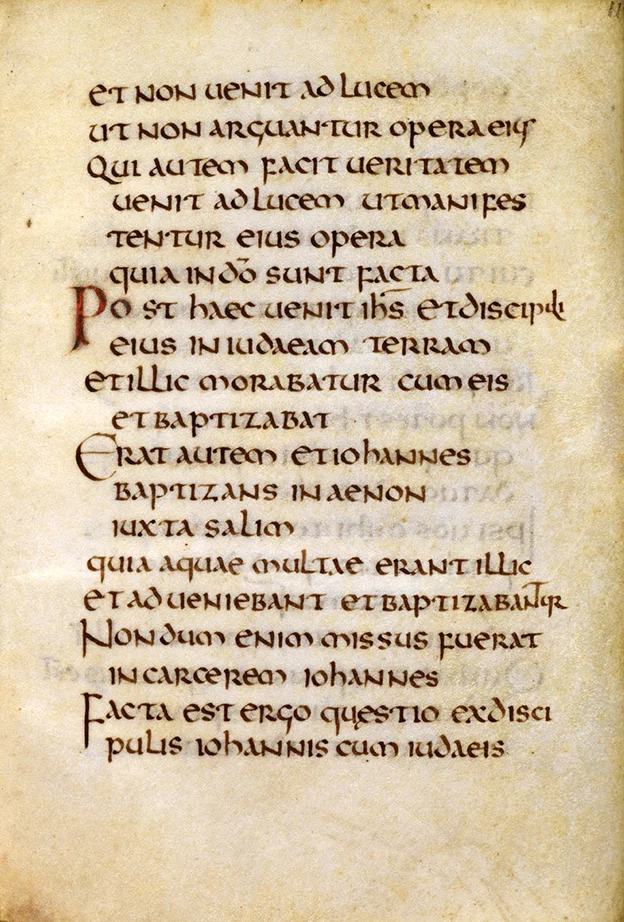 11
et non uenit ad lucem
ut non arguantur opera eius
Qui autem facit ueritatem
uenit ad lucem ut manifes
tentur eius opera
quia in dō sunt facta
Post haec uenit ihs̄ et discipuli
eius in iudaeam terram
et illic morabatur cum eis
et baptizabat
Erat autem et iohannes
baptizans in aenon
iuxta salim
quia aquae multae erant illic
et adueniebant et baptizabantur
Nondum enim missus fuerat
in carcerem iohannes
Facta est ergo quęstio ex disci
pulis iohannis cum iudaeis